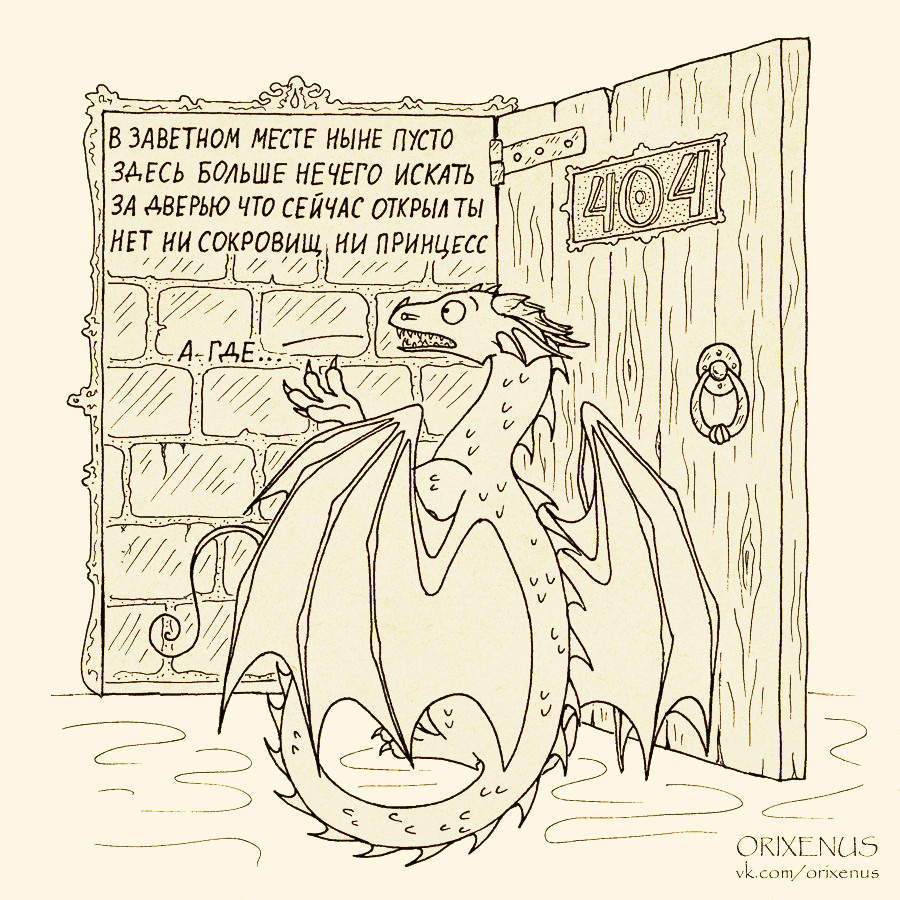 В ЗАВЕТНОМ МЕСТЕ НЫНЕ ПУСТО
ЗДЕСЬ БОЛЬШЕ НЕЧЕГО ИСКАТЬ
ЗА ДВЕРЬЮ ЧТО СЕЙЧАС ОТКРЫЛ ТЫ
НЕТ НИ СОКРОВИЩ, НИ ПРИНЦЕСС
404
А ГДЕ...
ORIXENUS
vk.com/orixenus